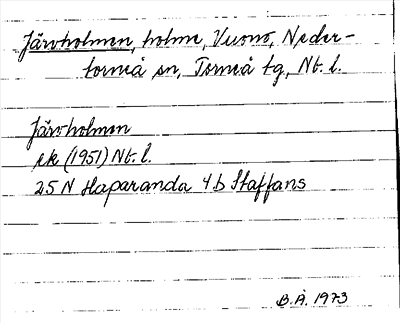 Järvholmen, holme, Vuono, Neder-
torneå sn, Torneå tg, Nb. l.
Järvholmen
ek (1951) Nb. l.
25 N Haparanda 4b Staffans
B.Å. 1973